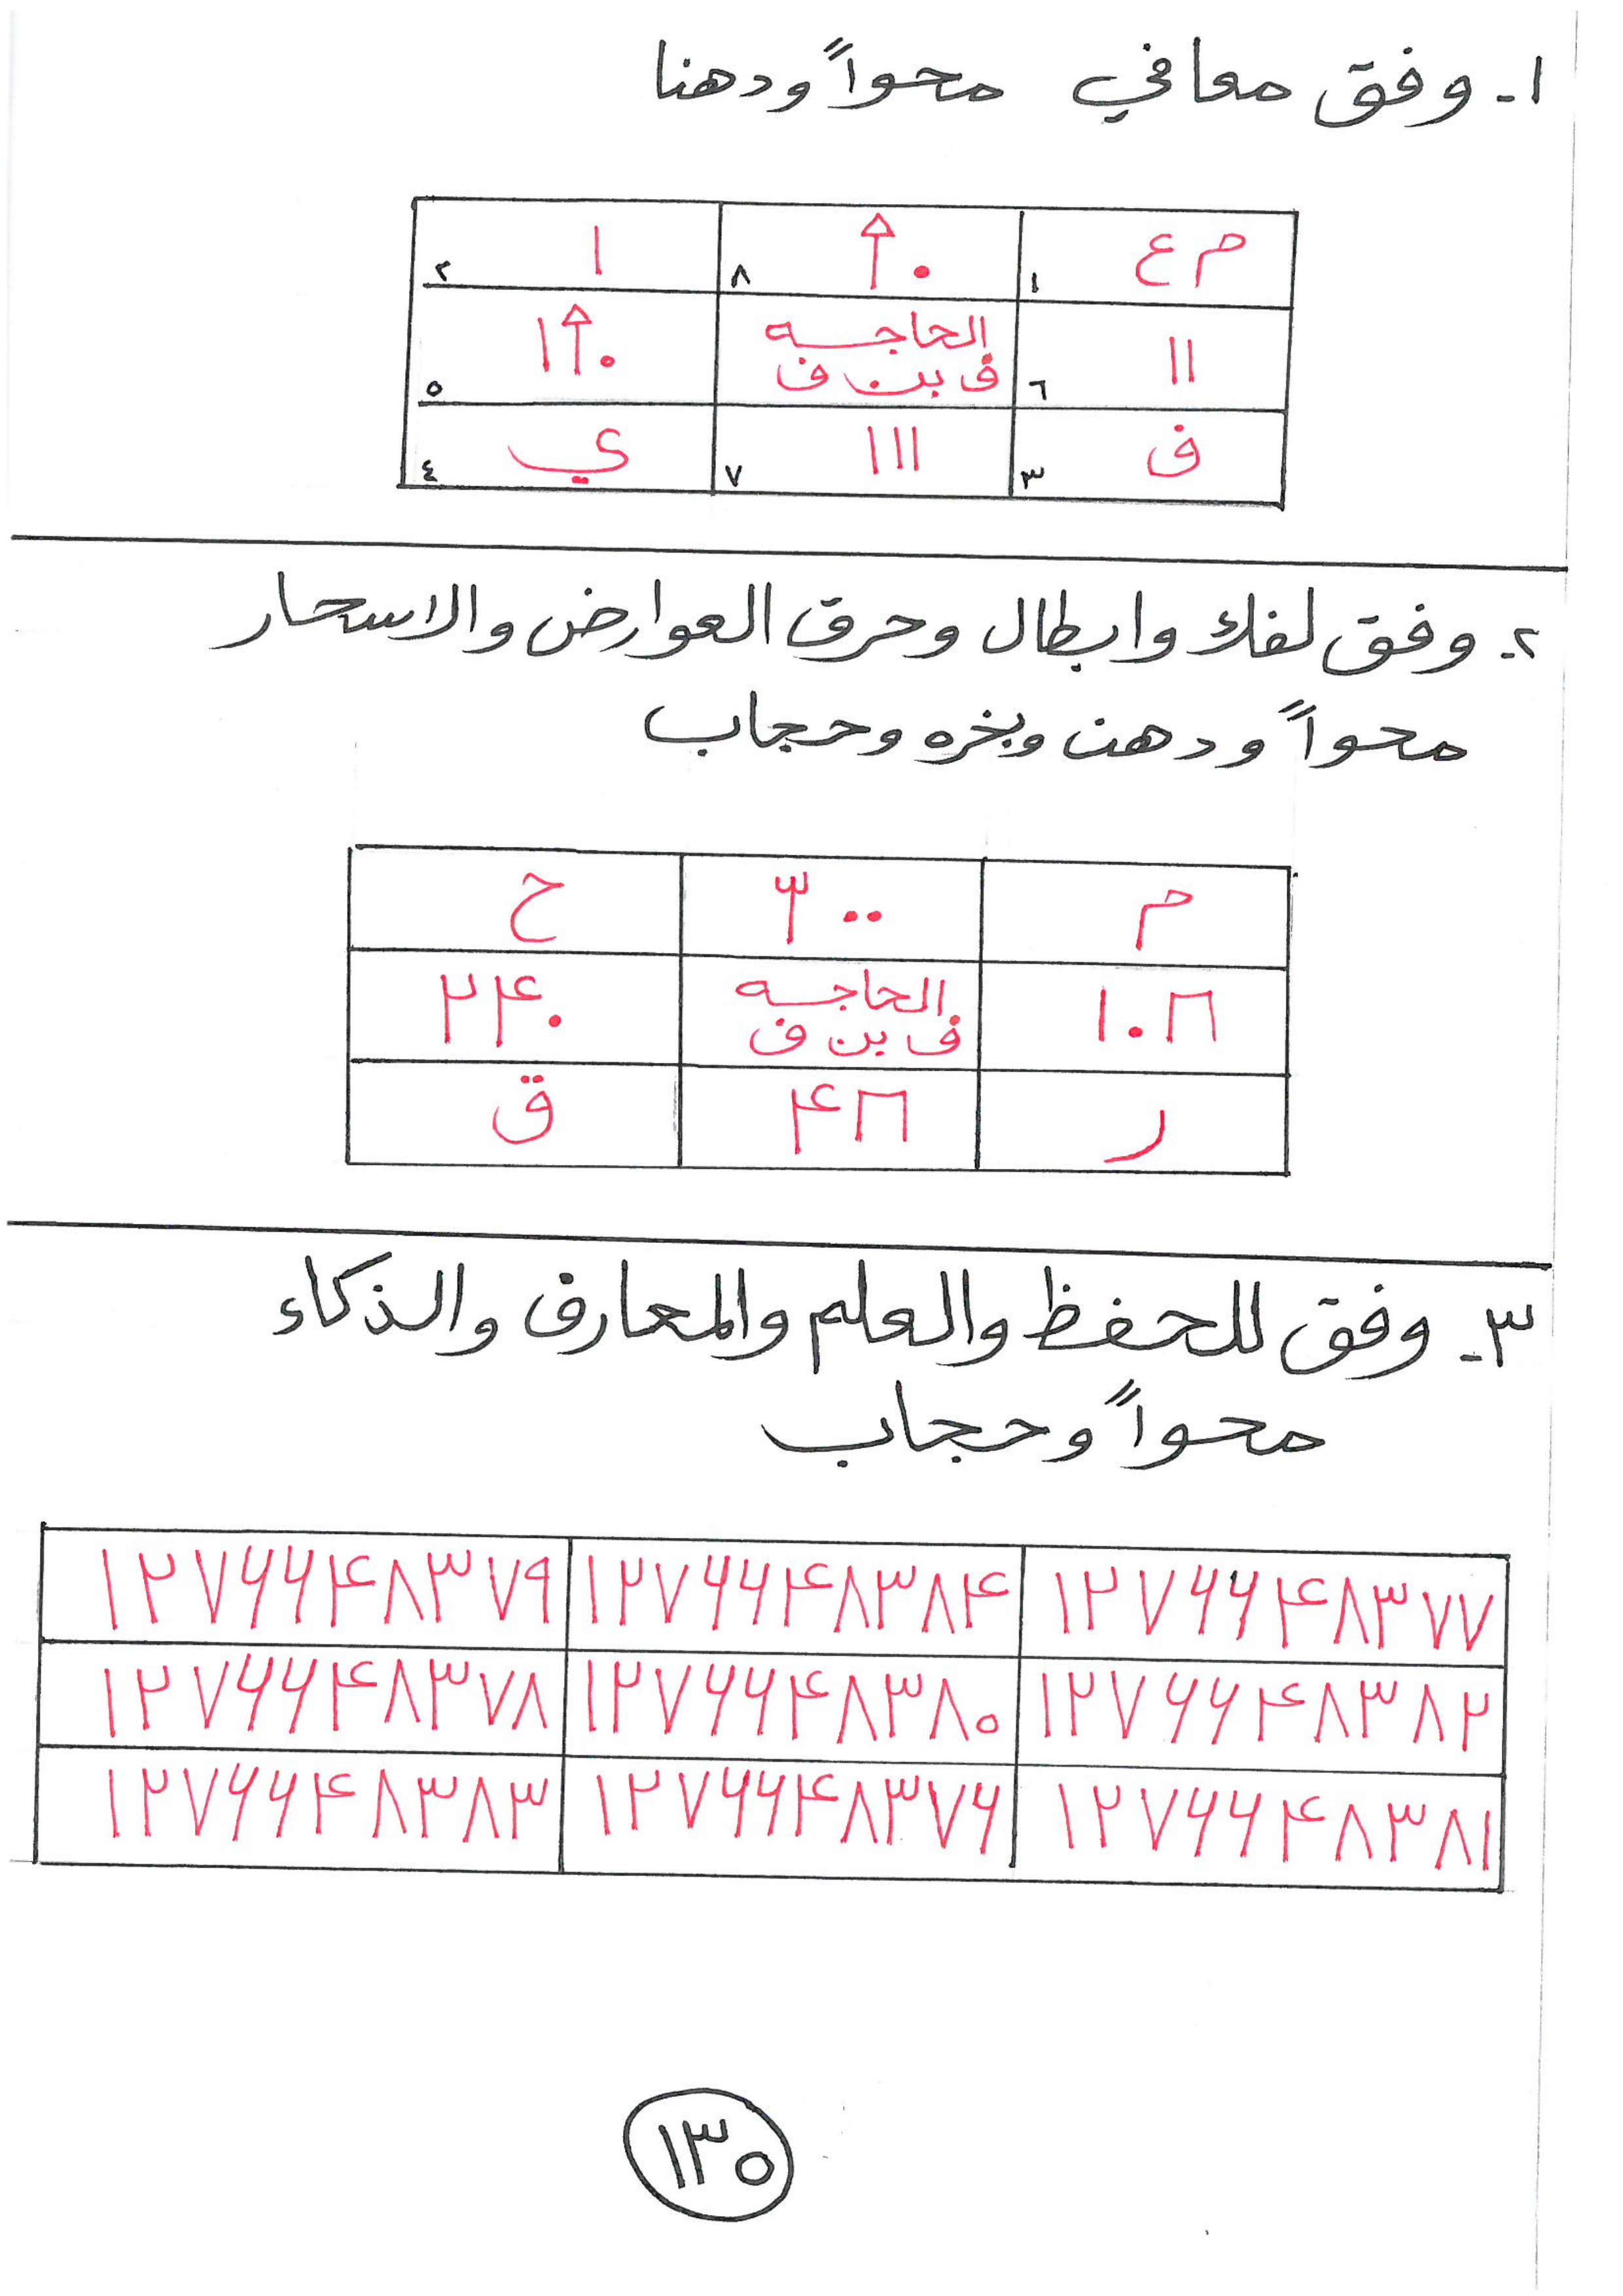 ١- وفق معافي محواً ودهنا
م ع ٠↑ ا
١ ٨ ٢
١١ الحاجه ١↑٠
ف بن ف
٦ ٥
ف ١١١ ي
٣ ٧ ٤
٢- وفق لفك وابطال وحرق العوارض والاسحار
محواً ودهن وبخره وحجاب
م ٣٠٠ ح
١٠٦ الحاجه ٢٤٠
ف بن ف
ر ٤٦ ق
٣- وفق للحفظ والعلم والمعارف والذكاء
محواً وحجاب
١٢٧٦٦۴٨٣٧٧ ١٢٧٦٦۴٨٣٨۴ ١٢٧٦٦۴٨٣٧٩
١٢٧٦٦۴٨٣٨٢ ١٢٧٦٦۴٨٣٨٠ ١٢٧٦٦۴٨٣٧٨
١٢٧٦٦۴٨٣٨١ ١٢٧٦٦۴٨٣٧٦ ١٢٧٦٦۴٨٣٨٣
١٣٠